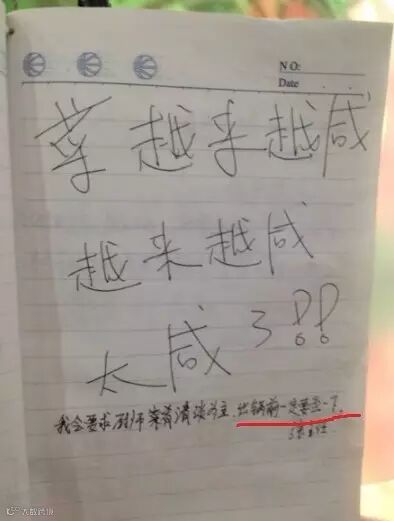 NO:
Date
菜越来越咸
越来越咸
太咸了!!
我会要求厨师菜肴清淡为主,出锅前一定要尝一下。
大数跨境